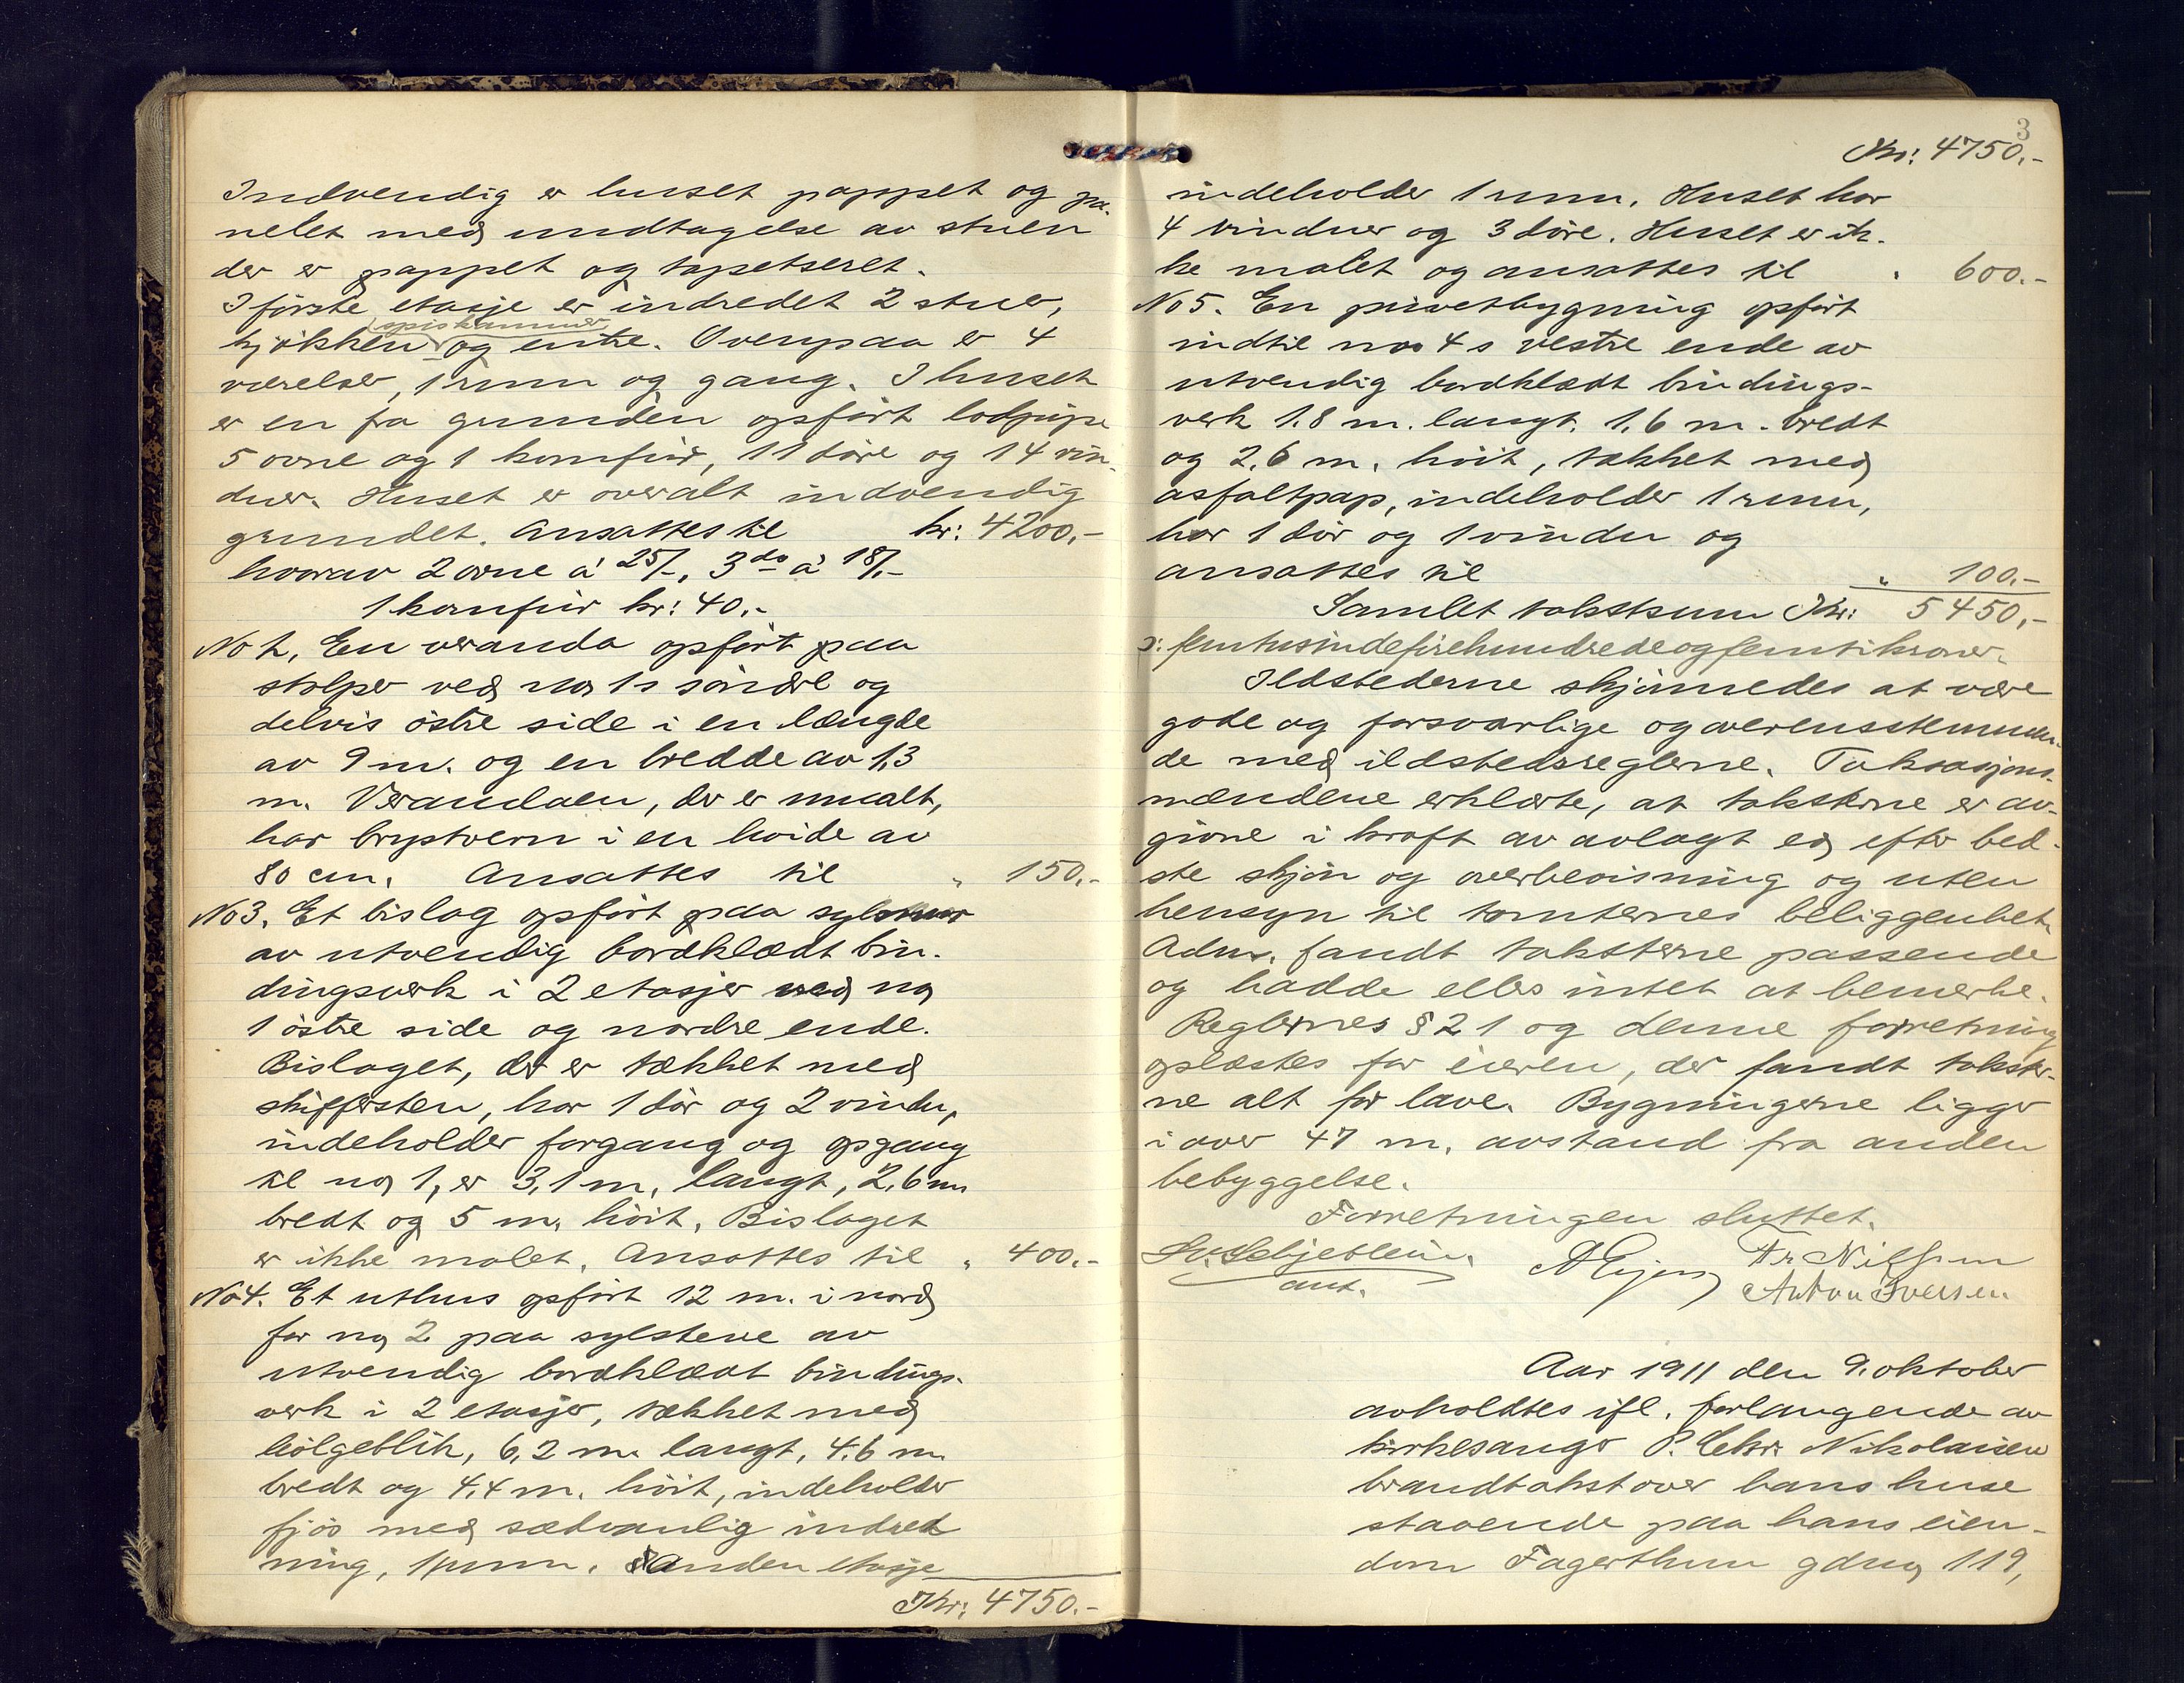 Indvendig er huset pappet og pa-
nelet med undtagelse av stuen
der er pappet og tapetseret.
I förste etasje er indredet 2 stuer,
spiskammer
kjökken og entre. Ovenpaa er 4
værelser, 1 rum og gang. I huset
er en fra grunden opfört lodpipe
5 ovne og 1 komfür, 11 döre og 14 vin-
duer. Huset er overalt indvendig
grundet. Ansattes til kr: 4200,-
hvorav 2 ovne á 25/-, 3 do á 18/-
1 komfür kr: 40.-
No 2. En veranda opfört paa
stolper ved no 1s söndre og
delvis östre side i en længde
av 9 m. og en bredde av 1,3
m. Verandaen, der er umalt,
har brystvern i en höide av
80 cm. Ansattes til " 150.-
No 3. Et bislag opfört paa sylmur
av utvendig bordklædt bin-
dingsverk i 2 etasjer ved no
1 östre side og nordre ende.
Bislaget, der er tækket med
skiffersten, har 1 dör og 2 vindu,
indeholder forgang og opgang
til no 1, er 3,1 m. langt, 2,6 m
bredt og 5 m. höit. Bislaget
er ikke malet. Ansattes til " 400.-
No 4. Et uthus opfört 12 m. i nord
for no 2 paa sylstene av
utvendig bordklædt bindings-
verk i 2 etasjer, tækket med
bölgeblik, 6,2 m. langt, 4,6 m.
bredt og 4,4 m. höit, indeholder
fjös med sædvanlig indred
ning, 1 rum. Anden etasje
Kr: 4750.-
3
Kr: 4750.-
indeholder 1 rum. Huset har
4 vinduer og 3 döre. Huset er ik-
ke malet og ansattes til " 600.-
No 5. En privetbygning opfört
indtil no 4s vestre ende av
utvendig bordklædt bindings-
verk 1.8 m. langt. 1,6 m. bredt
og 2,6 m. höit, tækket med
asfaltpap, indeholder 1 rum,
har 1 dör og 1 vindu og
ansattes til " 100.-
Samlet takstsum Kr: 5450,-
ɔ: femtusindefirehundredeogfemtikroner.
Ildstederne skjönnedes at være
gode og forsvarlige og overensstemmen-
de med ildstedsreglerne. Taksasjons-
mændene erklærte, at taksterne er av-
givne i kraft av avlagt ed efter bed-
ste skjön og overbevisning og uten
hensyn til tomternes beliggenhet.
Adm. fandt taksterne passende
og hadde ellers intet at bemerke.
Reglernes § 21 og denne forretning
oplæstes for eieren, der fandt takster-
ne alt for lave. Bygningerne ligger
i over 47 m. avstand fra anden
bebyggelse.
Forretningen sluttet.
Fr Nilssen
ant. Anton Iversen
Aar 1911 den 9. oktober
avholdtes ifl. forlangende av
kirkesanger P. Chr. Nikolaisen
brandtakst over hans huse
staaende paa hans eien-
dom Fagerthun gdno 119,